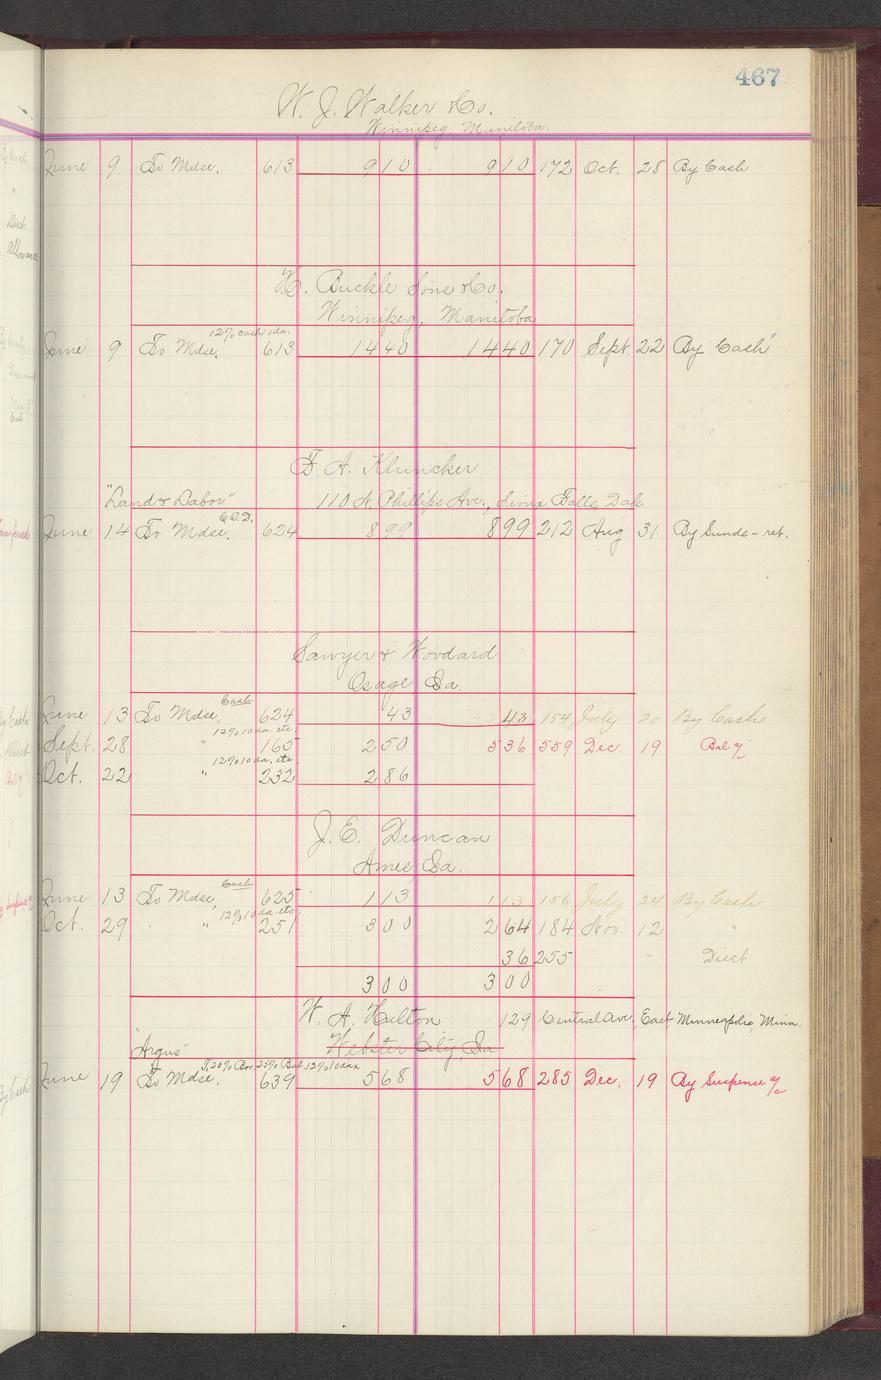 467
W. J. Walker & Co.
Winnipeg Manitoba.
June 9 To Mdse. 613 910 910 172 Oct. 28 By Cash
H. Buckle Sons & Co.
Winnipeg, Manitoba
12% cash da.
June 9 To Mdse. 613 1440 1440 170 Sept. 22 By Cash
F. A. Kluncker
"Land & Labor" 110 N. Phillips Ave., Sioux Falls, Dak
C.O.D.
June 14 To Mdse. 624 899 899 212 Aug 31 By Sunds - ret.
Sawyer & Woodard
Osage Ia.
Cash
June 13 To Mdse. 624 43 43 154 July 20 By Cash
12% 10 da. etc.
Sept. 28 " 165 250 536 559 Dec. 19 Bal a/c
12% 10 da. etc.
Oct. 22 " 232 286
J. E. Duncan
Ames Ia.
Cash
June 13 To Mdse. 625 113 113 156 July 24 By Cash
12% 10 da. etc.
Oct. 29 " 251 300 264 184 Nov. 12 "
36 255 " Disct
300 300
W. A. Hilton 129 Central Ave. East Minneapolis, Minn.
"Argus" Webster City, Ia
25% Bal. 12% 10 dax
June 19 To Mdse. 639 568 568 285 Dec. 19 By Suspense a/c